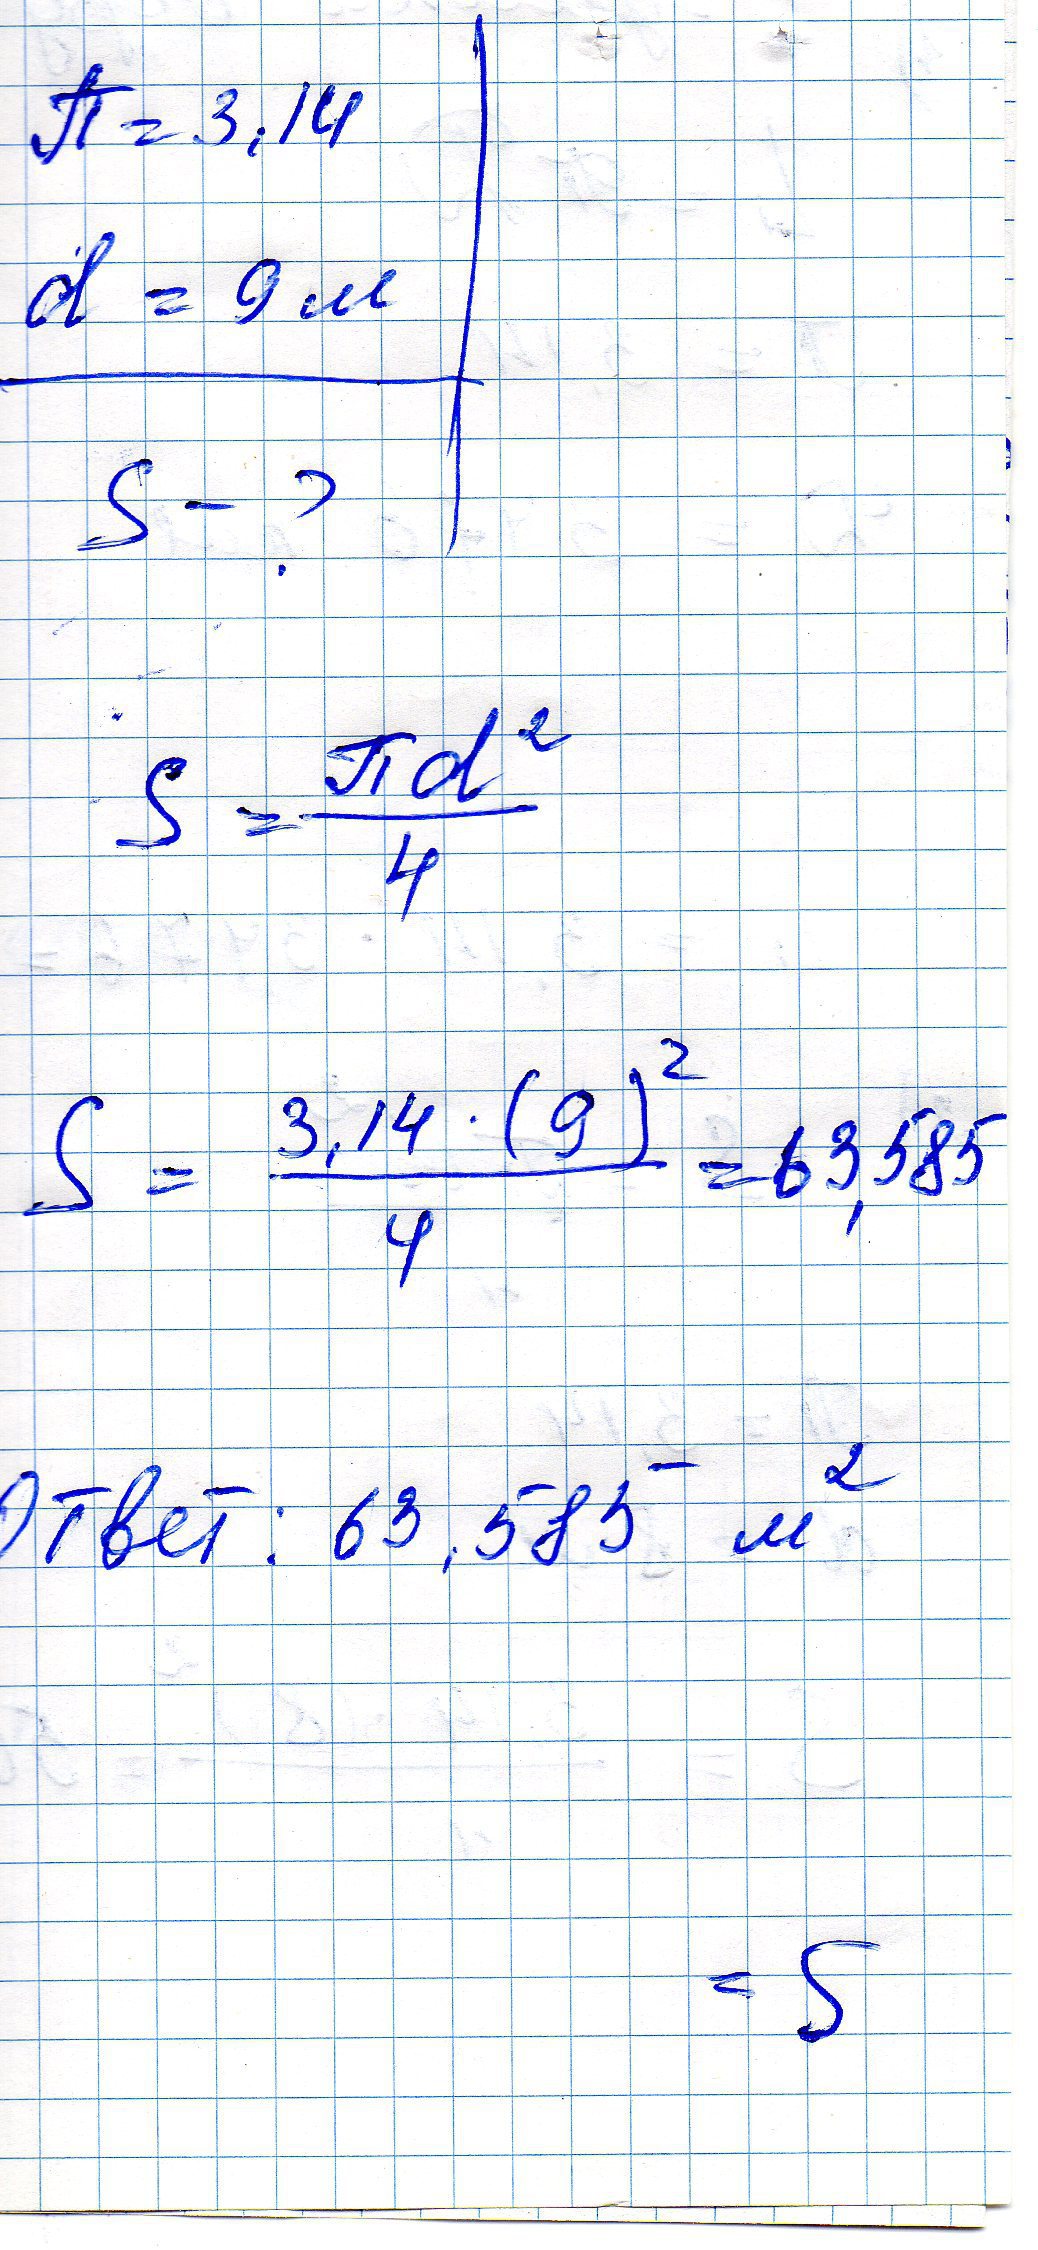 π = 3,14
d = 9 м
S - ?
S = πd²/4
S = 3,14 · (9)²/4 = 63,585
Ответ: 63,585 м²
= 5